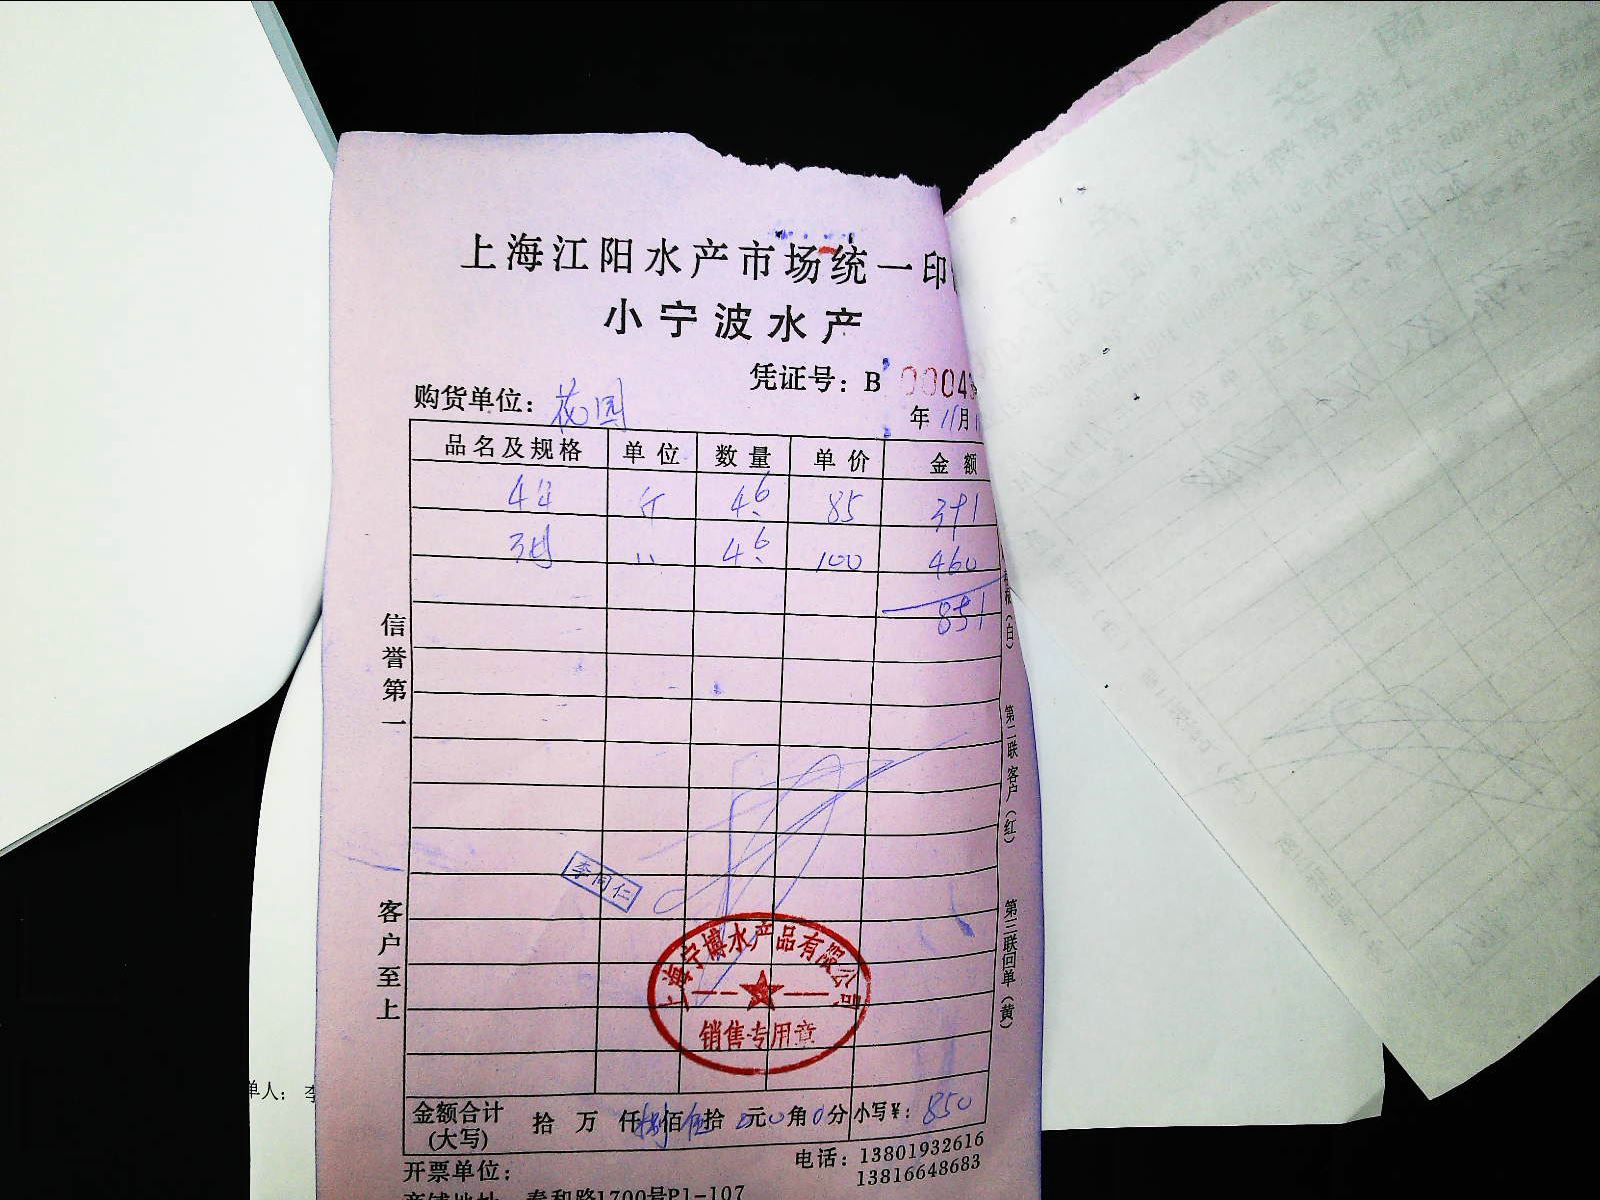 上海江阳水产市场统一印
小宁波水产
凭证号：B 00043
购货单位：花园
年 11月
品名及规格 单位 数量 单价 金额
斤 4.6 85 391
〃 4.6 100 460
851
信誉第一
客户至上
（白）
第二联 客户（红）
第三联 回单（黄）
李同仁
上海宁博水产品有限公司
销售专用章
金额合计（大写） 拾 万 仟 捌佰 伍拾 0元 0角 0分 小写¥：850
开票单位：
电话：13801932616
13816648683
商铺地址 泰和路1700号P1-107
单人：李